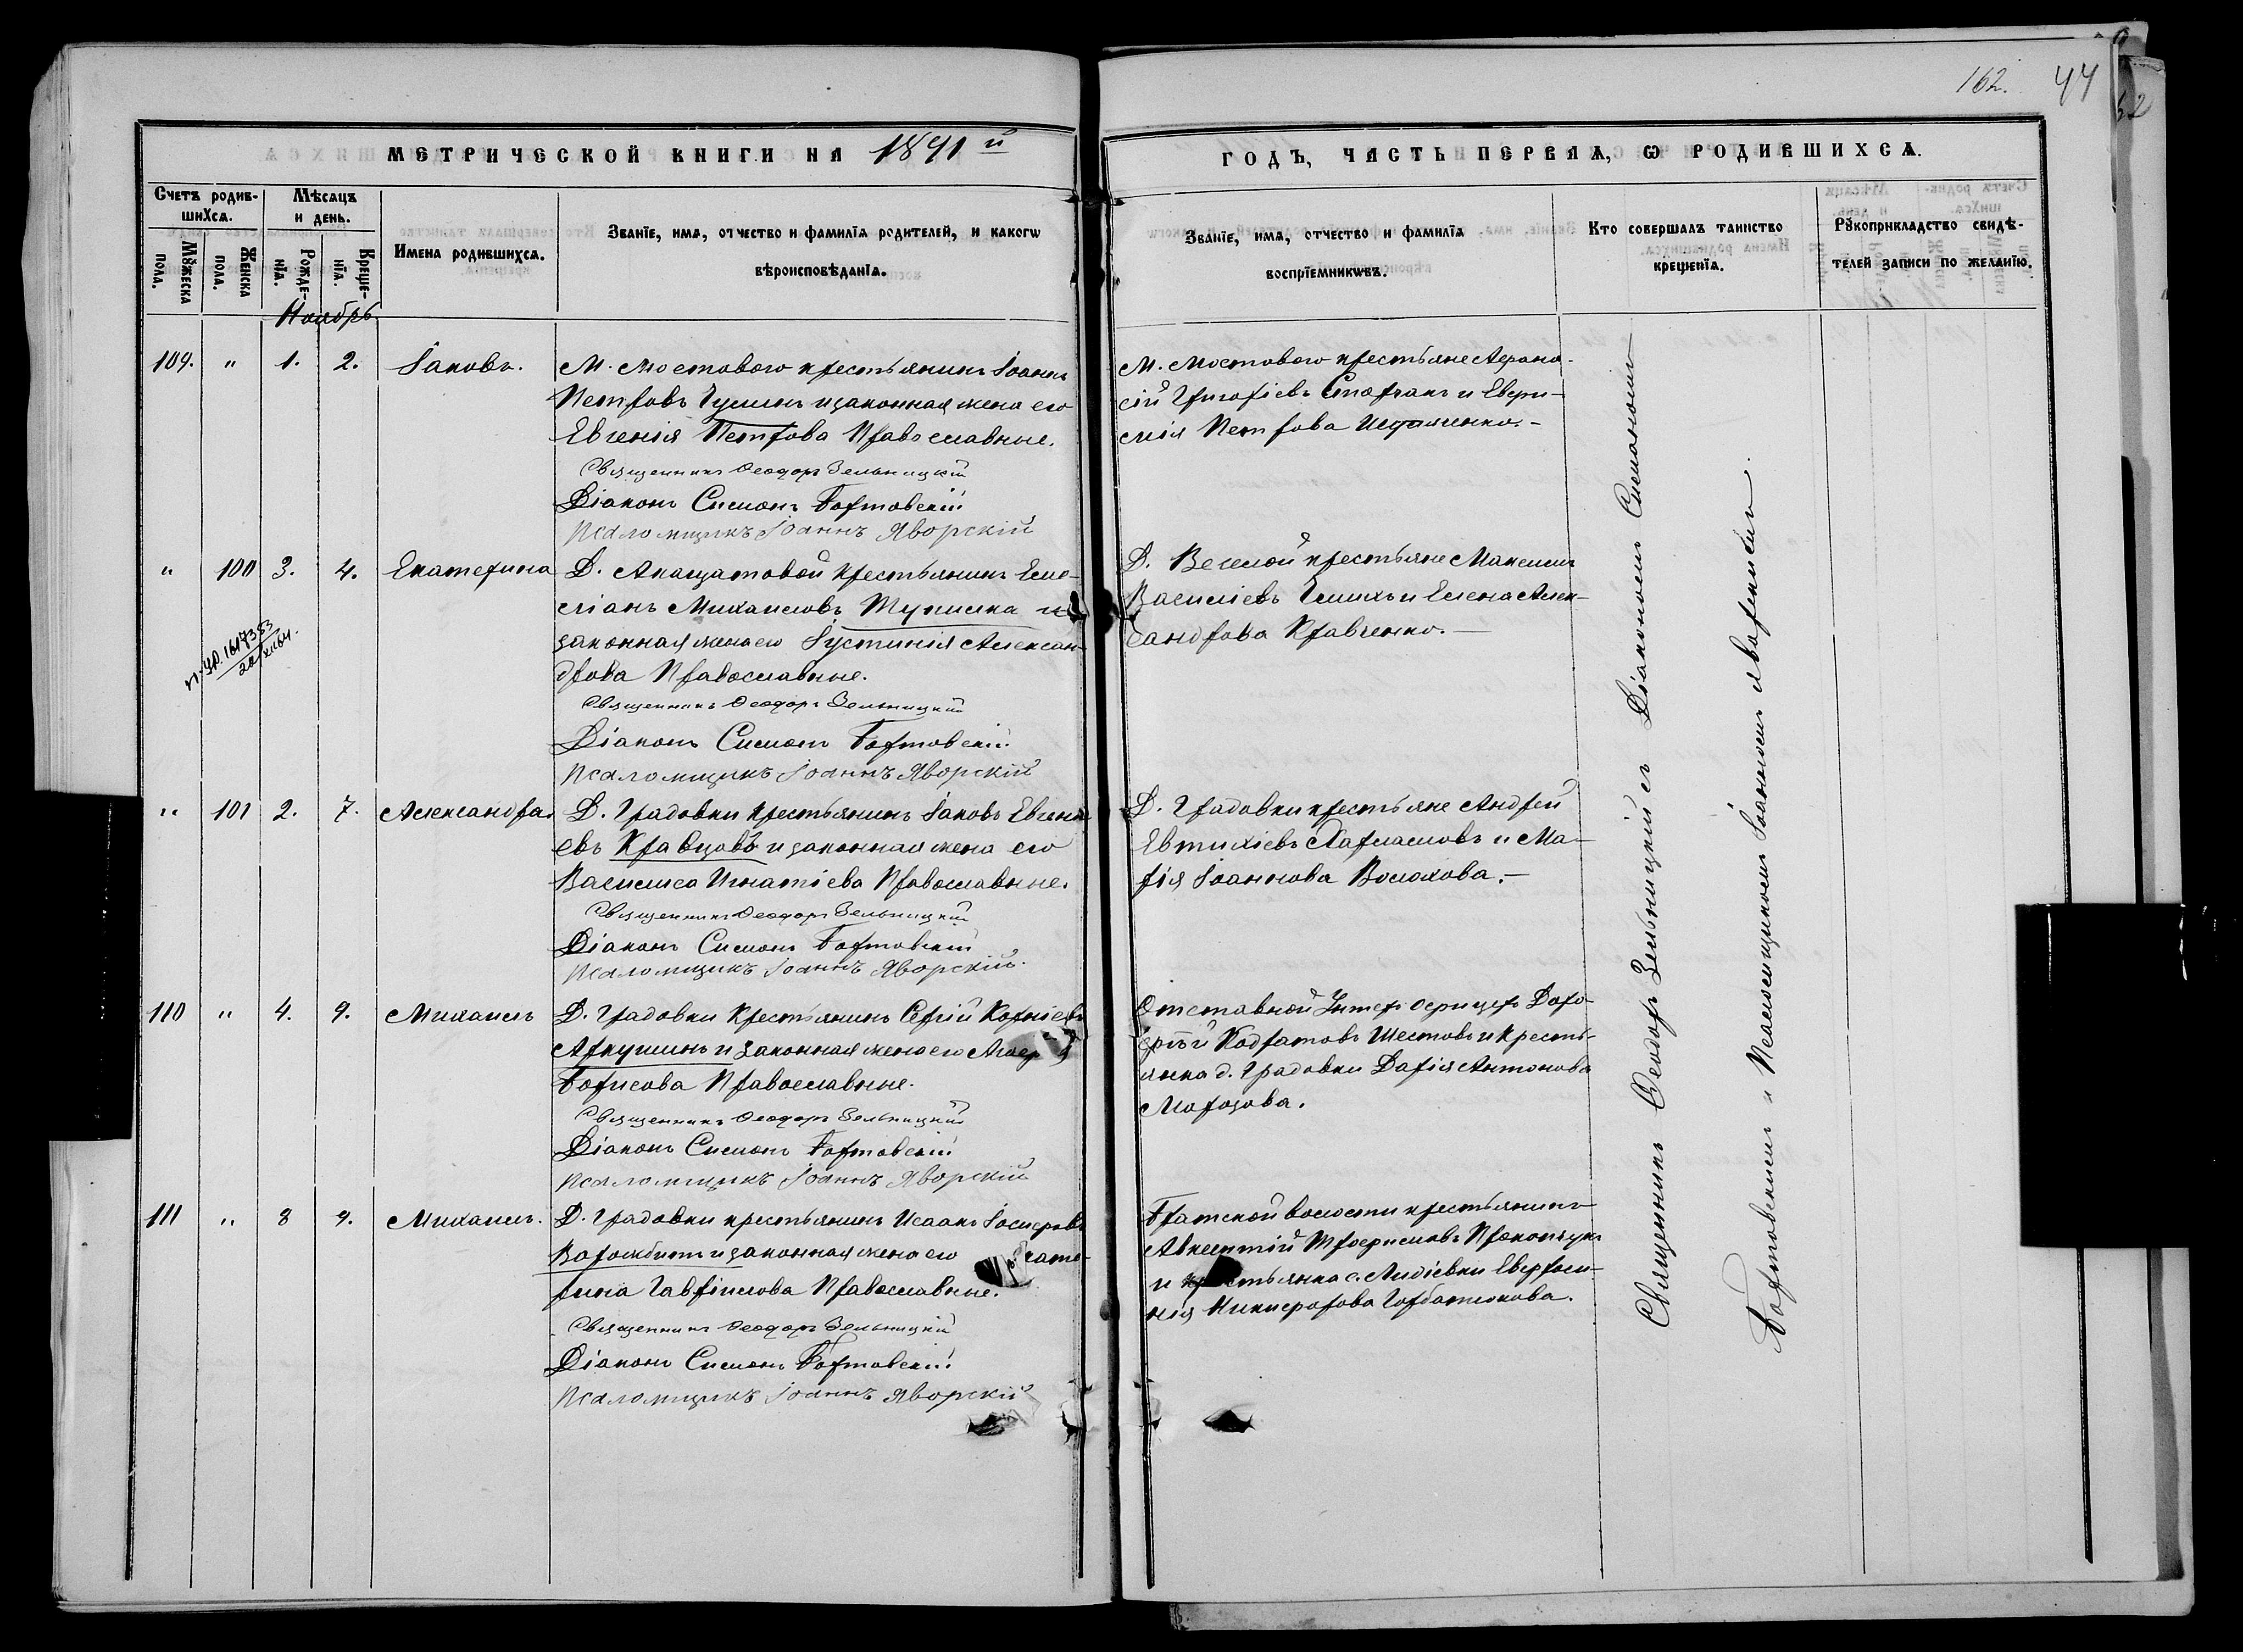 162. 44
МЕТРИЧЕСКОЙ КНИГИ НА 1891й
ГОДЪ, ЧАСТЬ ПЕРВАЯ, Ѡ РОДИВШИХСЯ.
Счетъ родив-
шиХся.
Мѣсяцъ
и день.
Мꙋжеска
пола.
Женска
пола.
Рожде-
нїя.
Креще-
нїя.
Имена родившихся.
Званїе, имя, отчество и фамилїя родителей, и какогѡ
вѣроисповѣданїя.
Званїе, имя, отчество и фамилїя
воспрїемникѡвъ.
Кто совершалъ таинство
крещенїя.
Рꙋкоприкладство свидѣ-
телей записи по желанїю.
Ноябрь
109. " 1. 2. Іаковъ.
М. Мостового крестьянинъ Іоаннъ
Петровъ и законная жена его
Евгенія Петрова Православные.
Священникъ Ѳеодоръ Зельницкій
Діаконъ Симонъ Бортовскій
Псаломщикъ Іоаннъ Яворскій
М. Мостового крестьяне Афана-
сій Григоріевъ и Евфи-
мія Петрова
" 100 3. 4. Екатерина
Д. Акацатовой крестьянинъ Еме-
ліанъ Михаиловъ Тупилка и
законная жена его Іустинія Алексан-
дрова Православные.
Священникъ Ѳеодоръ Зельницкій
Діаконъ Симонъ Бортовскій
Псаломщикъ Іоаннъ Яворскій
Д. крестьяне Максимъ
Василіевъ и Елена Алек-
сандрова Кравченко.
1617383
" 101 2. 7. Александра
Д. Градовки крестьянинъ Іаковъ Евгені-
евъ Кравцовъ и законная жена его
Василиса Игнатіева Православные.
Священникъ Ѳеодоръ Зельницкій
Діаконъ Симонъ Бортовскій
Псаломщикъ Іоаннъ Яворскій.
Д. Градовки крестьяне Андрей
Евтихіевъ Харламовъ и Ма-
рія Іоаннова Волохова.
110 " 4. 9. Михаилъ
Д. Градовки крестьянинъ Сергій Корніевъ
Аркушинъ и законная жена его
Борисова Православные.
Священникъ Ѳеодоръ Зельницкій
Діаконъ Симонъ Бортовскій
Псаломщикъ Іоаннъ Яворскій
Отставной Унтеръ офицеръ Доро-
ѳей Кодратовъ Шестовъ и кресть-
янка д. Градовки Дарія Антонова
Морозова.
111 " 8 9. Михаилъ.
Д. Градовки крестьянинъ Исаакъ Іосифовъ
Ворожбитъ и законная жена его Екате-
рина Гавріилова Православные.
Священникъ Ѳеодоръ Зельницкій
Діаконъ Симонъ Бортовскій
Псаломщикъ Іоаннъ Яворскій
Братской волости крестьянинъ
Авксентій Трофимовъ Прокопчукъ
и крестьянка с. Лидіевки Евфроси-
нія Никифорова Горбатюкова.
Священникъ Ѳеодоръ Зельницкій съ Діакономъ Симономъ
Бортовскимъ и Псаломщикомъ Іоанномъ Яворскимъ.